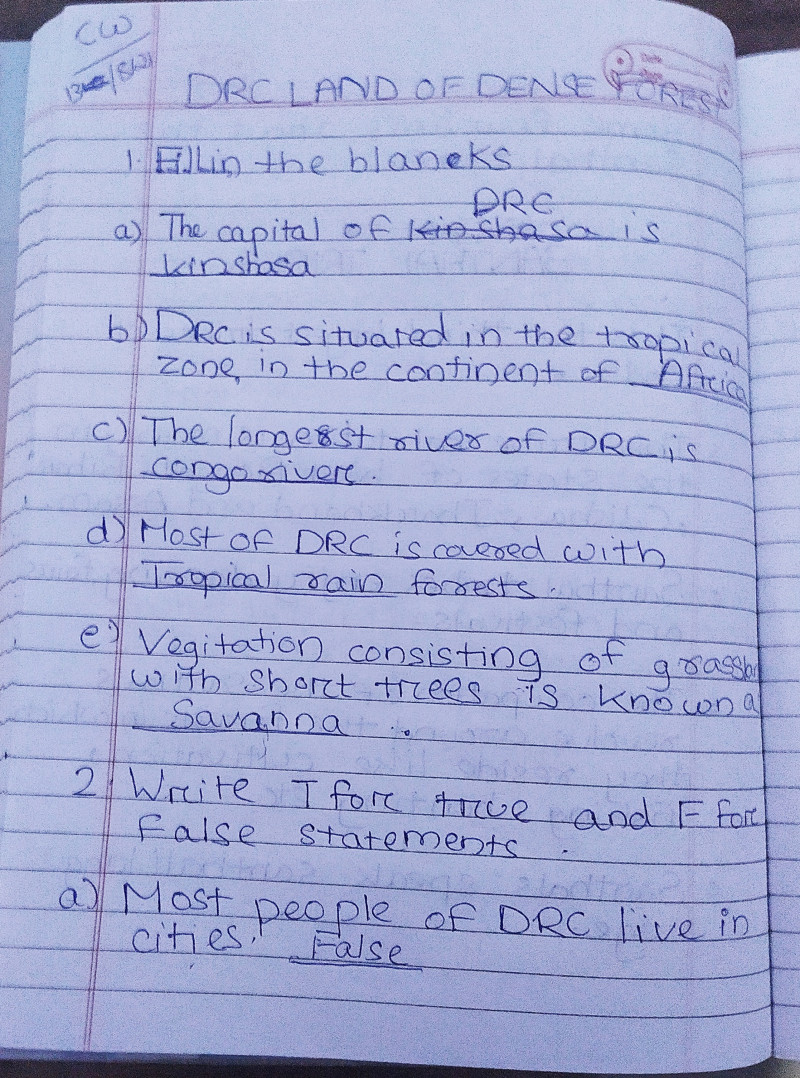 CW
DRC LAND OF DENSE FOREST
1. Fill in the blaneks
DRC
a) The capital of kinshasa is
kinshasa
b) DRC is situared in the tropical
zone, in the continent of Africa
c) The longest river of DRC is
congo rivere.
d) Most of DRC is covered with
Tropical rain forests.
e) Vegitation consisting of grassla
with short trees is known a
Savanna.
2 Write T for true and F for
False statements.
a) Most people of DRC live in
cities. False